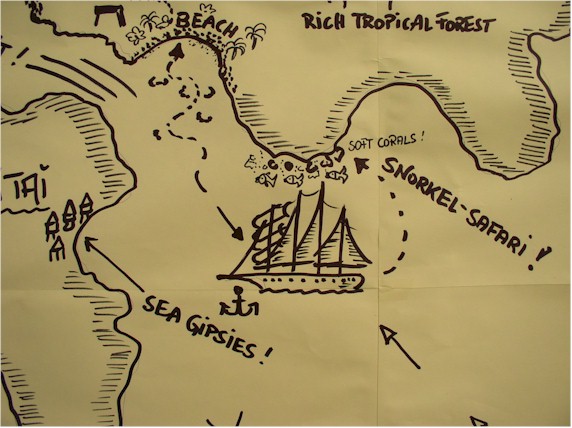 BEACH
RICH TROPICAL FOREST
SOFT CORALS!
SNORKEL-SAFARI!
TAI
SEA GIPSIES!